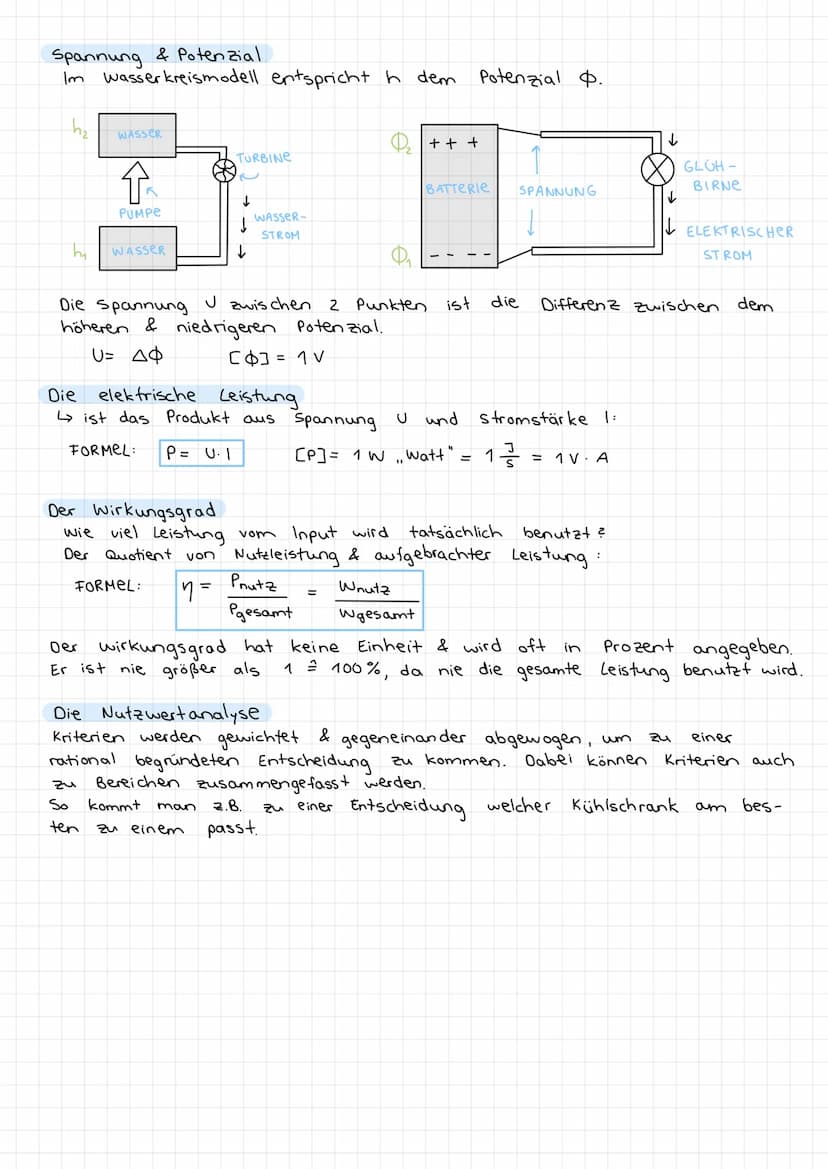 Spannung & Potenzial
Im Wasserkreismodell entspricht h dem Potenzial Φ.
h₂
WASSER
TURBINE
PUMPE
WASSER-
STROM
h₁
WASSER
Φ₂
+ + +
BATTERIE
SPANNUNG
GLÜH-
BIRNE
ELEKTRISCHER
STROM
Φ₁
- - - -
Die Spannung U zwischen 2 Punkten ist die Differenz zwischen dem
höheren & niedrigeren Potenzial.
U= ΔΦ [Φ] = 1 V
Die elektrische Leistung
↳ ist das Produkt aus Spannung U und Stromstärke I:
FORMEL: P = U·I [P]= 1 W „Watt" = 1 J/s = 1 V · A
Der Wirkungsgrad
Wie viel Leistung vom Input wird tatsächlich benutzt?
Der Quotient von Nutzleistung & aufgebrachter Leistung:
FORMEL: η = Pnutz / Pgesamt = Wnutz / Wgesamt
Der Wirkungsgrad hat keine Einheit & wird oft in Prozent angegeben.
Er ist nie größer als 1 ≙ 100%, da nie die gesamte Leistung benutzt wird.
Die Nutzwertanalyse
Kriterien werden gewichtet & gegeneinander abgewogen, um zu einer
rational begründeten Entscheidung zu kommen. Dabei können Kriterien auch
zu Bereichen zusammengefasst werden.
So kommt man z.B. zu einer Entscheidung welcher Kühlschrank am bes-
ten zu einem passt.